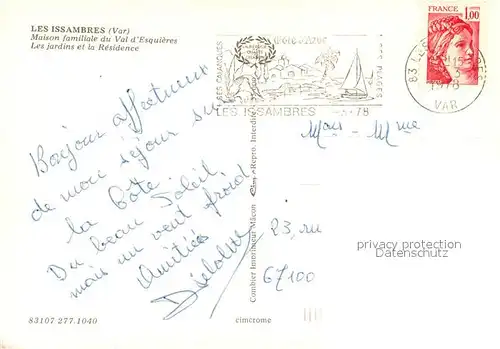 LES ISSAMBRES (Var)
Maison familiale du Val d'Esquières
Les jardins et la Résidence
SES CALANQUES
SES PLAGES
LES ISSAMBRES
-3-78
FRANCE
1,00
83 LES
1978
VAR
Bonjour affectueux
de mon séjour sur
la Côte.
Du beau Soleil
mais un vent froid
Amitiés
Mme
23, rue
67100
privacy protection
Datenschutz
Combier Imprimeur Mâcon
Repro. Interdite
83107 277.1040
cimèrome